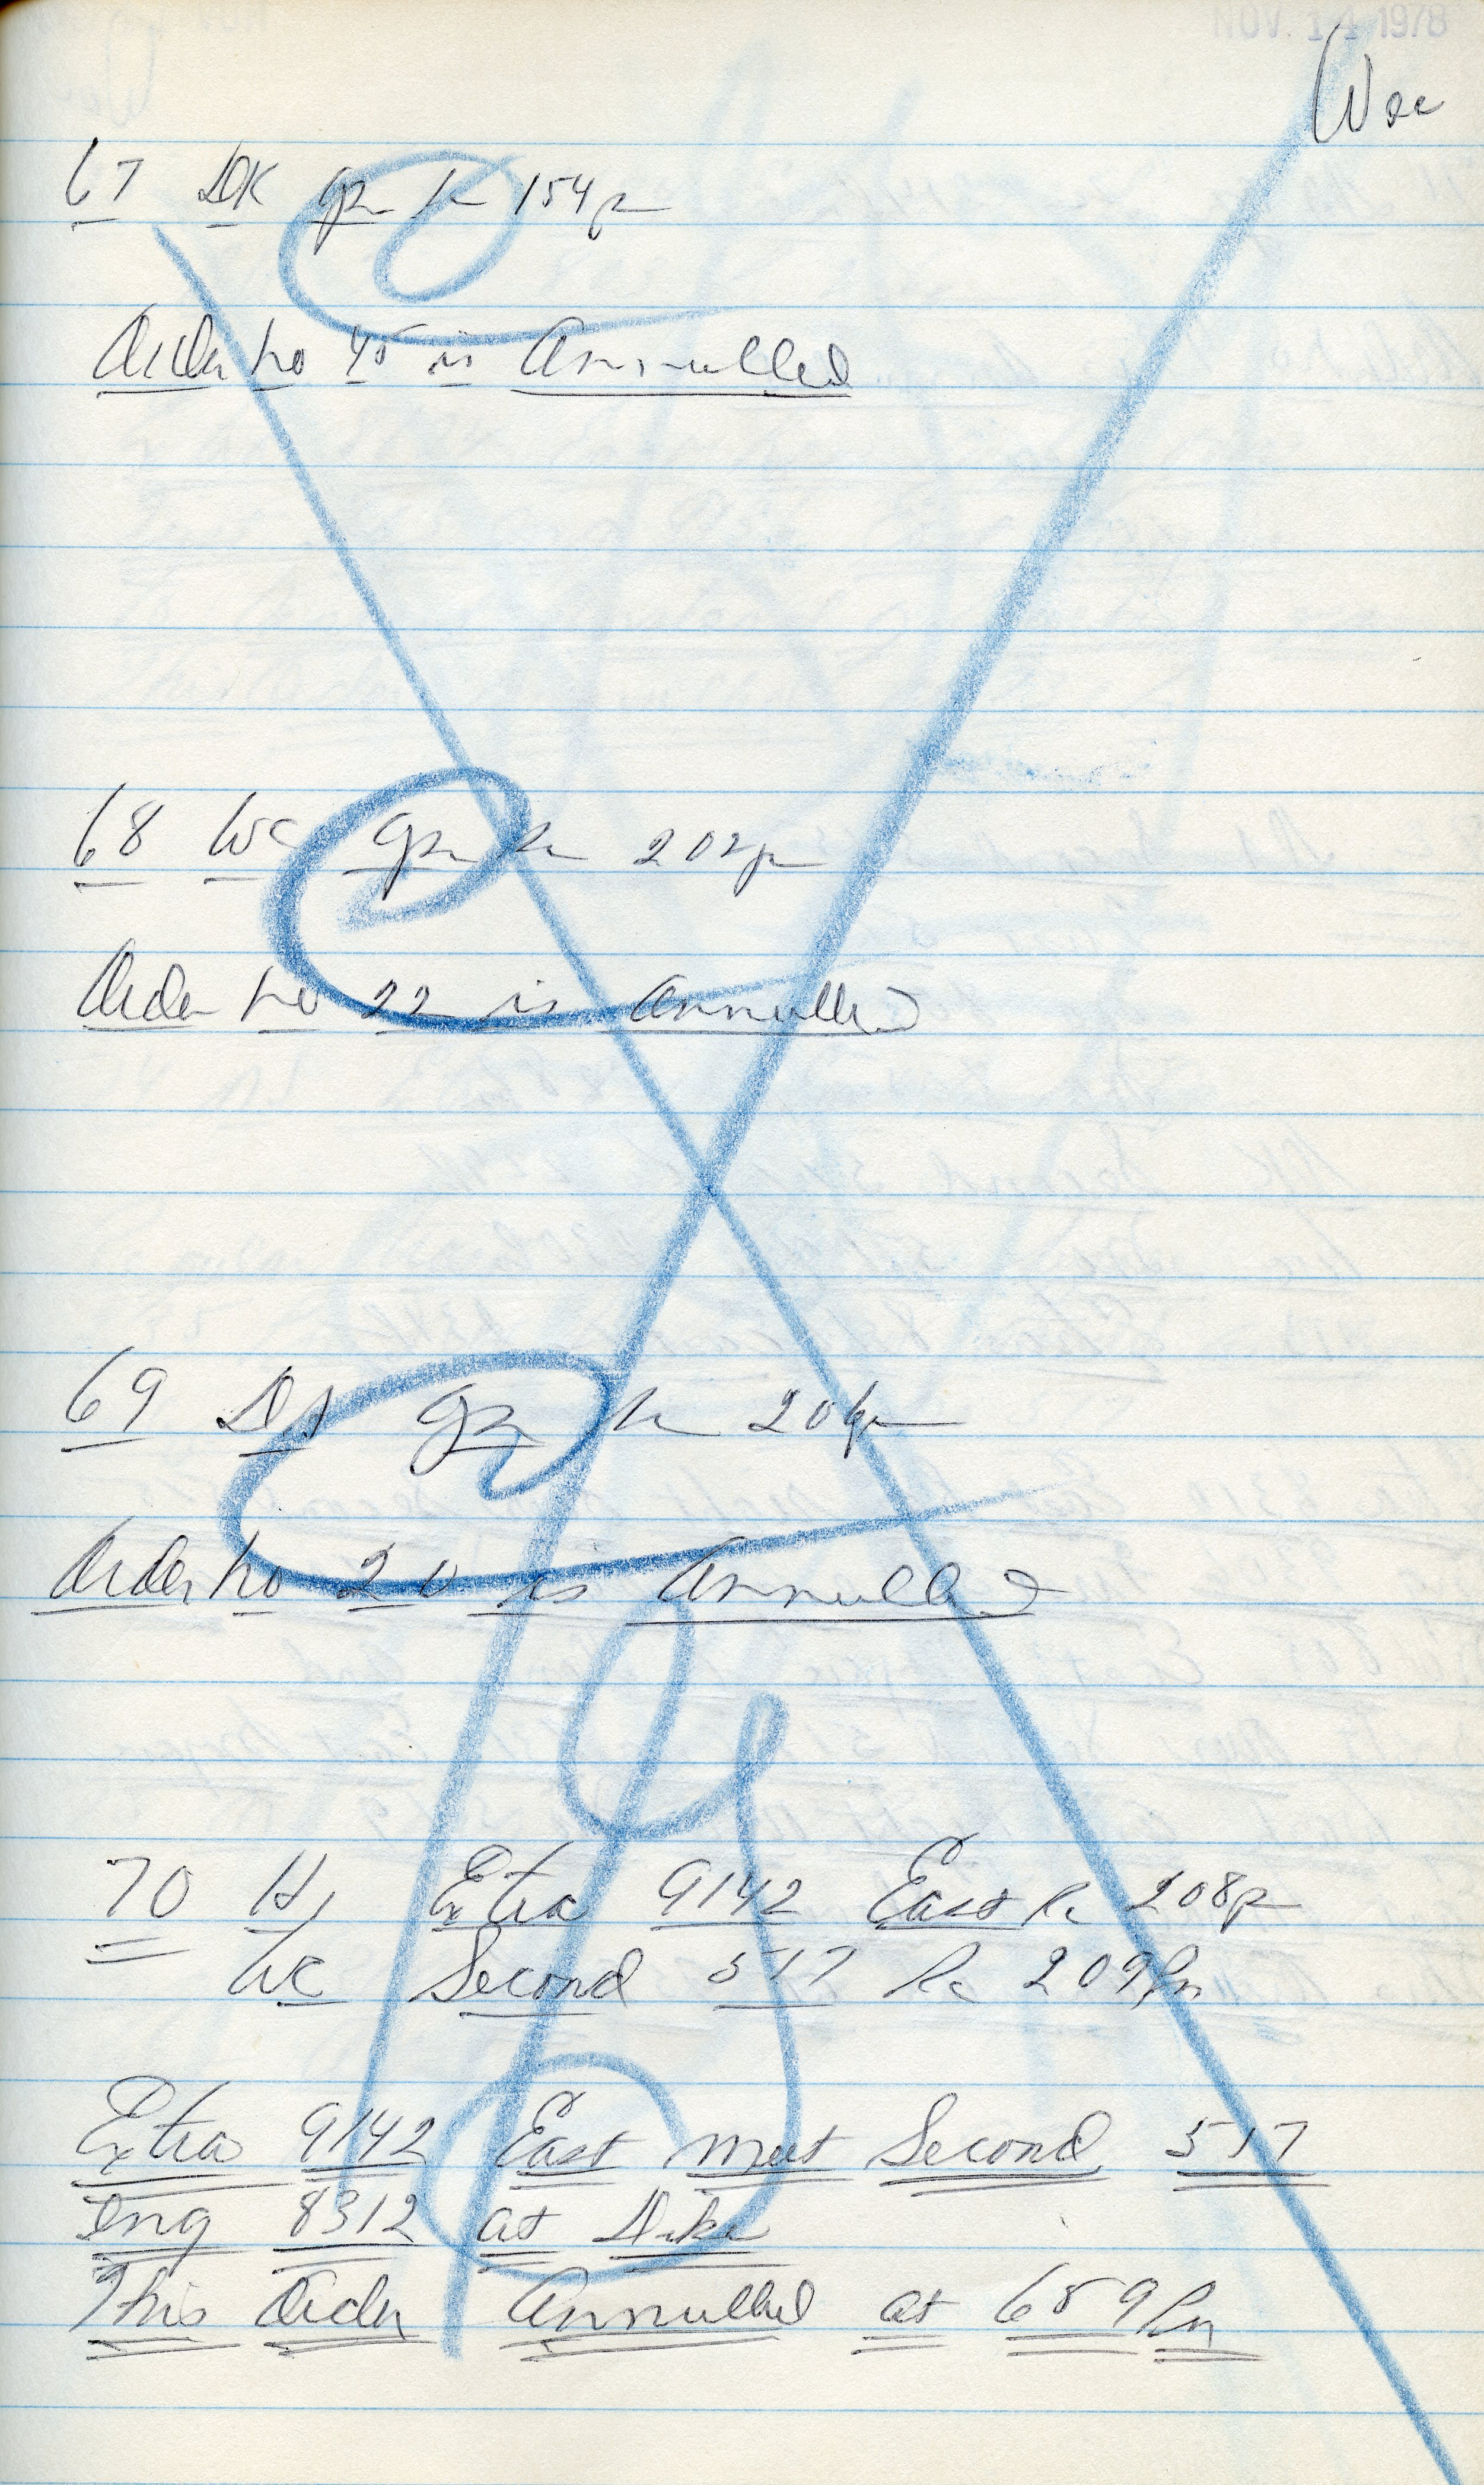 NOV. 14 1978
67 DK Opr 154p
Order No 45 is Annulled
68 WC Opr 202p
Order No 22 is Annulled
69 Ds Opr 206p
Order No 20 is Annulled
70 Hs Extra 9142 East 208p
WC Second 517 209Pm
Extra 9142 East meet Second 517
Eng 8312 at Dike
This Order Annulled at 659Pm